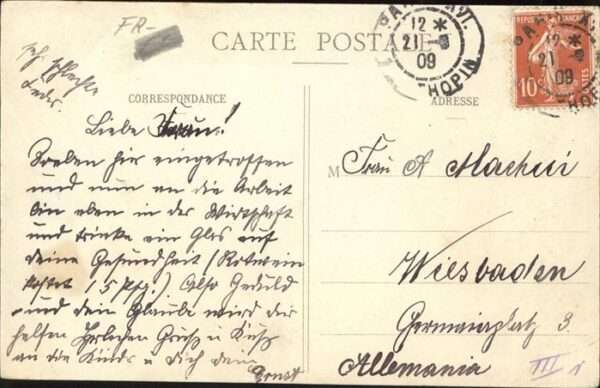 FR-
CARTE POSTALE
sehr schlechte
Feder.
CORRESPONDANCE
ADRESSE
12 *
21 -8
09
CHOPIN
12 *
21
09
CHOPIN
10c
POSTES
Liebe Frau!
Soeben hier eingetroffen
und nun an die Arbeit
bin eben in der Wirtschaft
und trinke ein Glas auf
deine Gesundheit (Rotwein
kostet 15 Pfg.) Also Geduld
und dein Glaube wird dir
helfen Herzlichen Gruß u Kuß
an die Kinder u Dich dein
Ernst
M
Frau A
Wiesbaden
Germaniaplatz 3.
Allemania
III